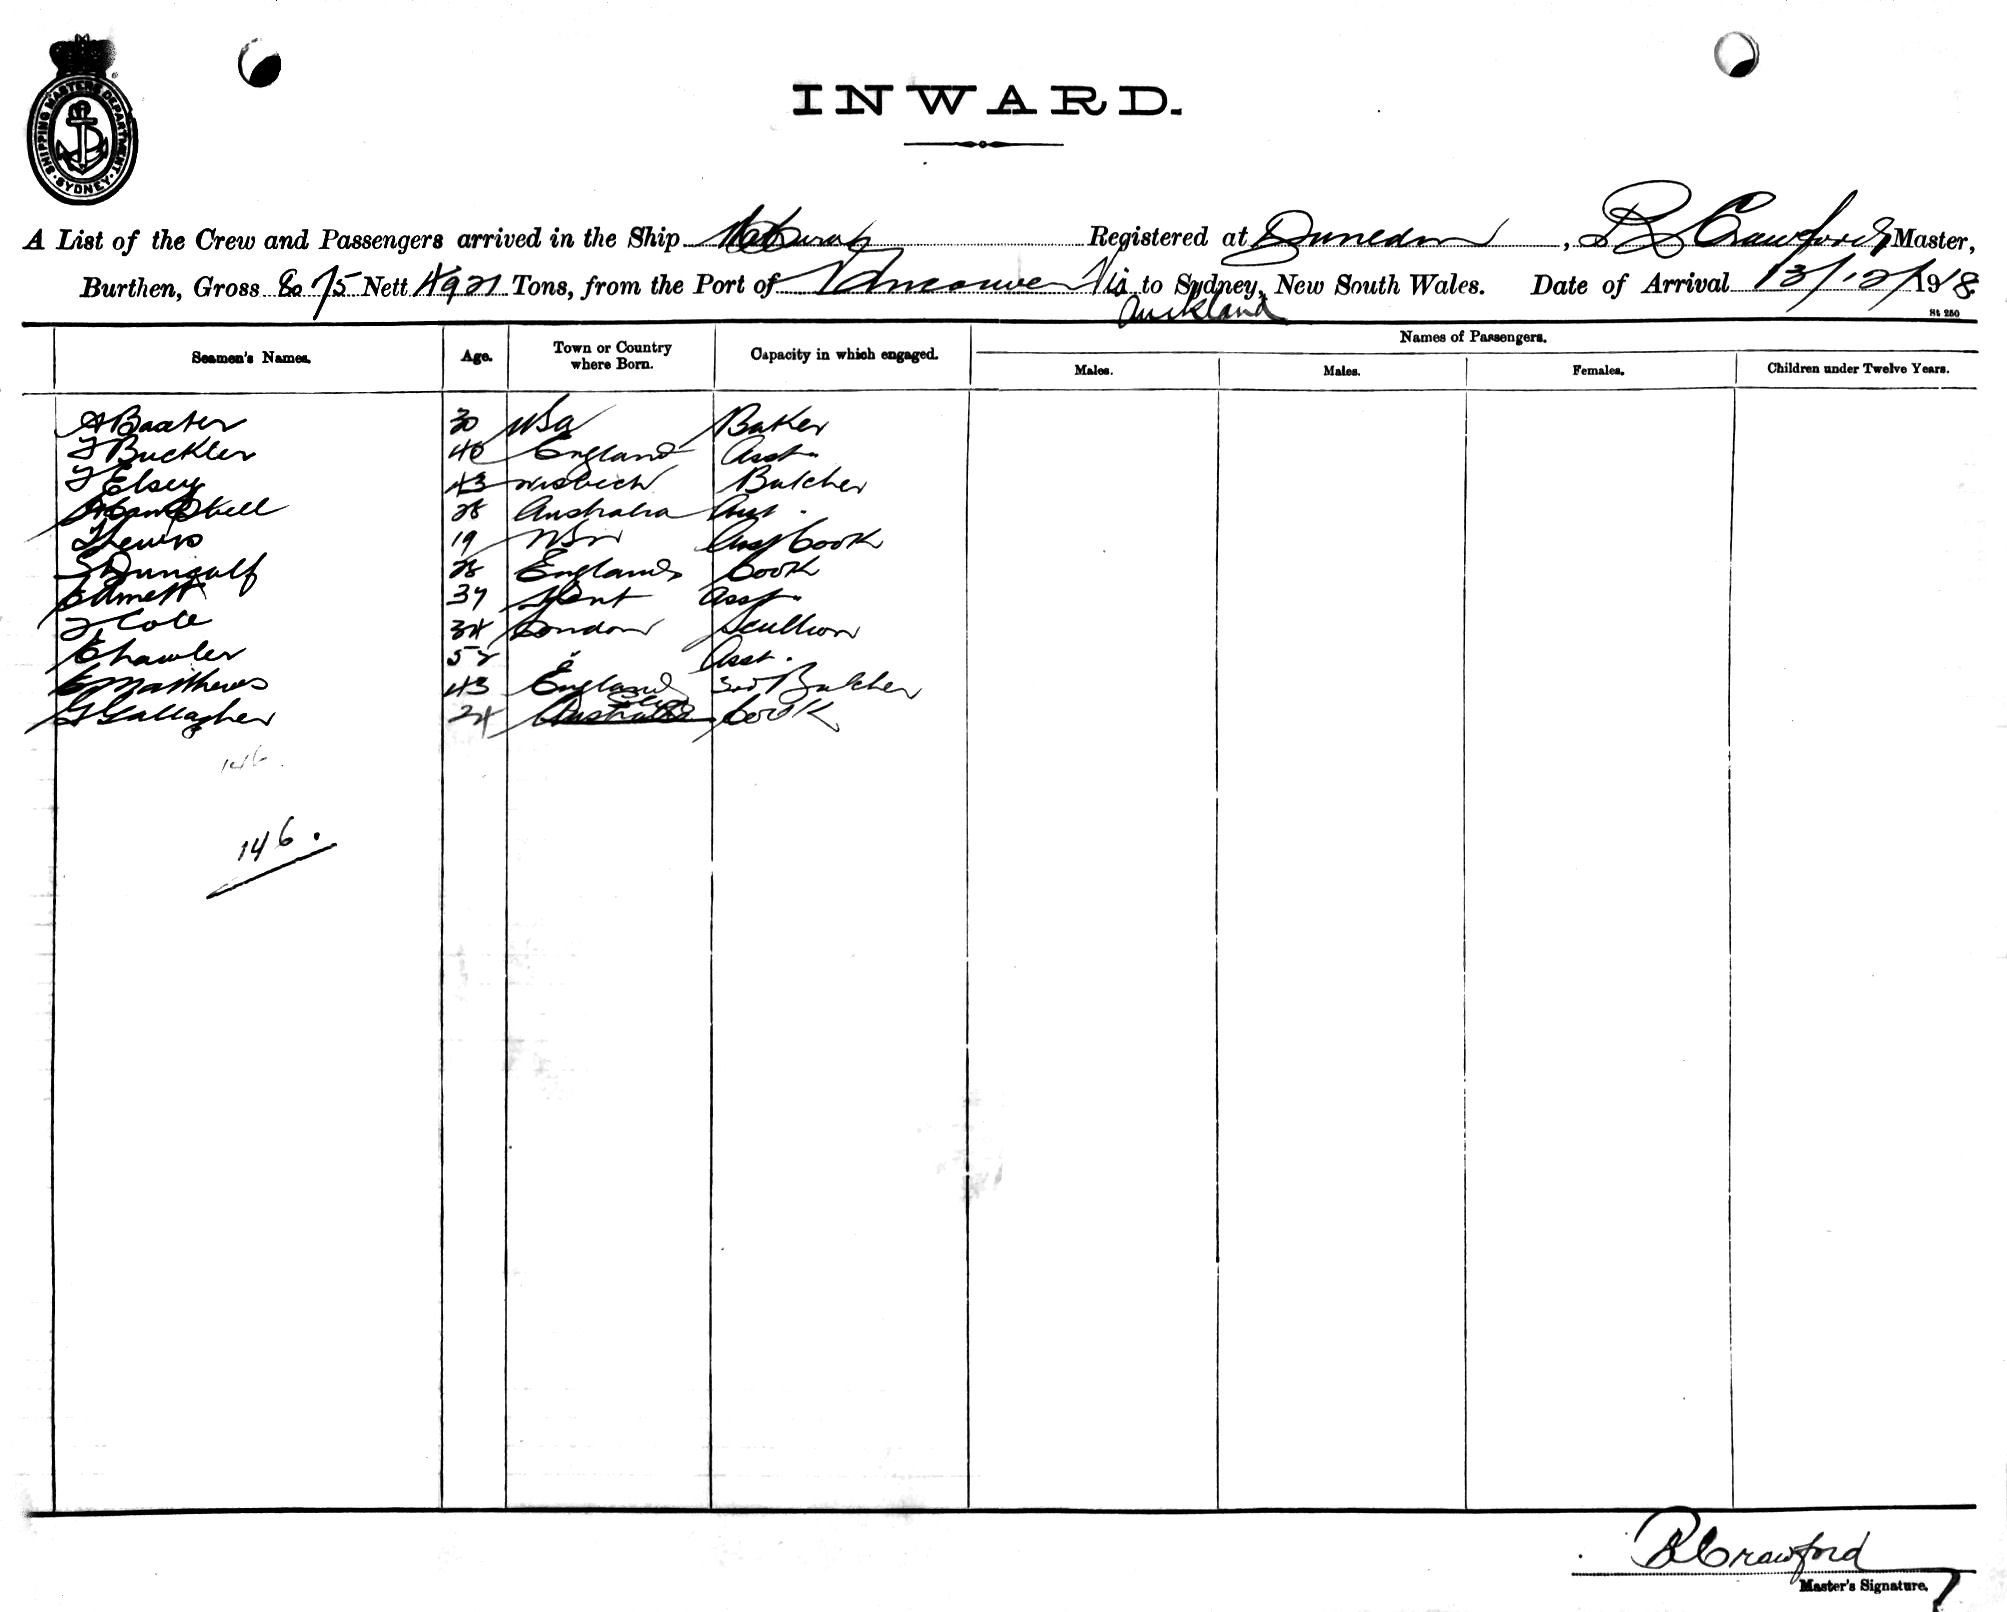 SHIPPING MASTERS DEPARTMENT
SYDNEY
INWARD.
A List of the Crew and Passengers arrived in the Ship Makura Registered at Dunedin, R Crawford Master,
Burthen, Gross 8075 Nett 4921 Tons, from the Port of Vancouver Via Auckland to Sydney, New South Wales. Date of Arrival 13/12/1918
St 250
Seamen's Names. Age. Town or Country where Born. Capacity in which engaged. Names of Passengers.
Males. Males. Females. Children under Twelve Years.
A Baxter 30 Baker
F Buckler 40 England Asst
F Elsey 43 Wisbech Butcher
A Campbell 28 Australia Asst.
Lewis 19 Asst Cook
Dungalf 28 England Cook
37 Kent Asst
F Cole 34 London Scullion
52 " Asst.
E Matthews 43 England 3rd Butcher
G Gallagher 24 Australia Cook
146.
146.
R Crawford
Master's Signature.